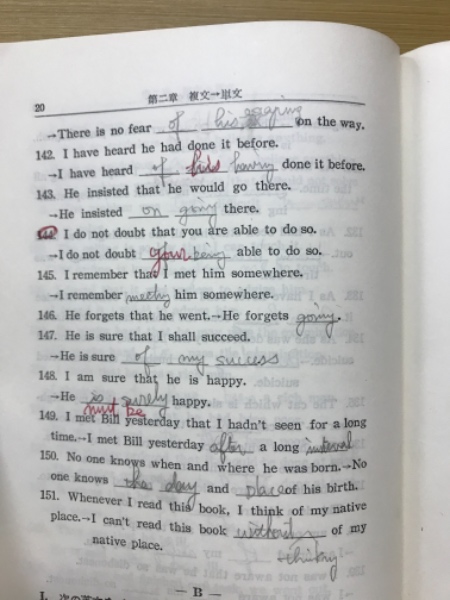 20 第二章 複文→単文
→There is no fear of his on the way.
142. I have heard he had done it before.
→I have heard of his having done it before.
143. He insisted that he would go there.
→He insisted on going there.
144. I do not doubt that you are able to do so.
→I do not doubt your being able to do so.
145. I remember that I met him somewhere.
→I remember meeting him somewhere.
146. He forgets that he went.→He forgets going.
147. He is sure that I shall succeed.
→He is sure of my success
148. I am sure that he is happy.
→He is surely happy.
must be
149. I met Bill yesterday that I hadn't seen for a long
time.→I met Bill yesterday after a long interval
150. No one knows when and where he was born.→No
one knows the day and place of his birth.
151. Whenever I read this book, I think of my native
place.→I can't read this book without of my
native place. thinking
— B —
I. 次の英文を